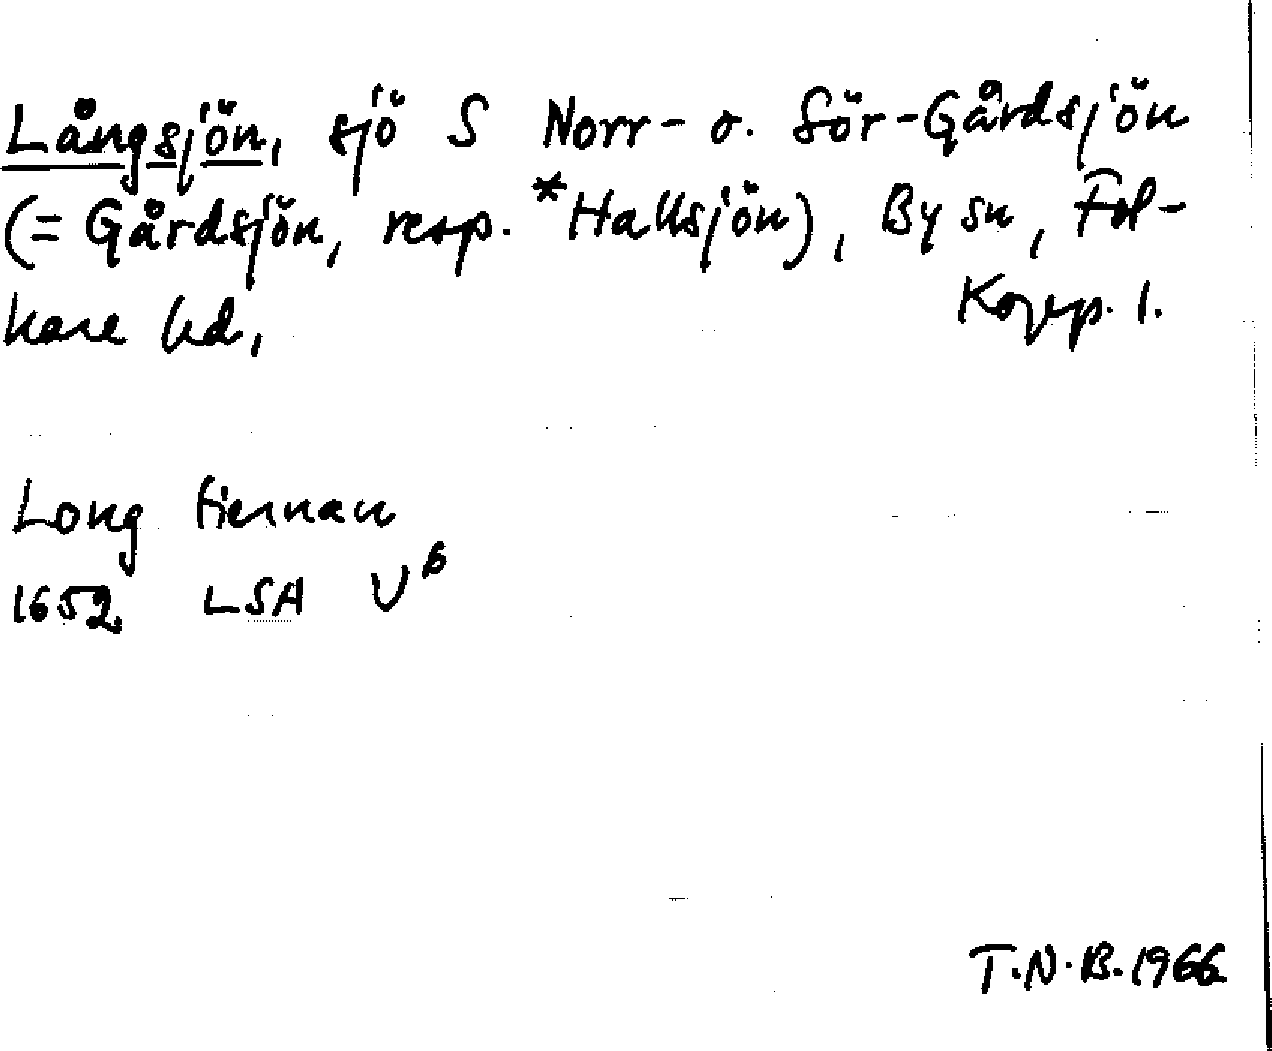 Långsjön, sjö S Norr- o. Sör-Gårdsjön
(= Gårdsjön, resp. *Hallsjön), By sn, Fol-
kare hd, Kopp. l.
Long tiernan
1652 LSA U⁶
T.N.B. 1966